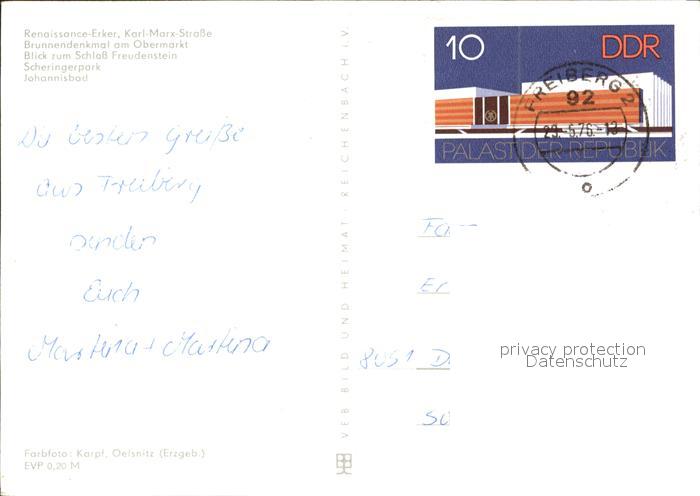 Renaissance-Erker, Karl-Marx-Straße
Brunnendenkmal am Obermarkt
Blick zum Schloß Freudenstein
Scheringerpark
Johannisbad
Die besten Grüße
aus Freiberg
senden
Euch
Martina + Martina
Farbfoto: Karpf, Oelsnitz (Erzgeb.)
EVP 0,20 M
VEB BILD UND HEIMAT REICHENBACH i.V.
10 DDR
PALAST DER REPUBLIK
FREIBERG 2
92
29.-6.76.-18
Fa
Er
8051 D
privacy protection
Datenschutz